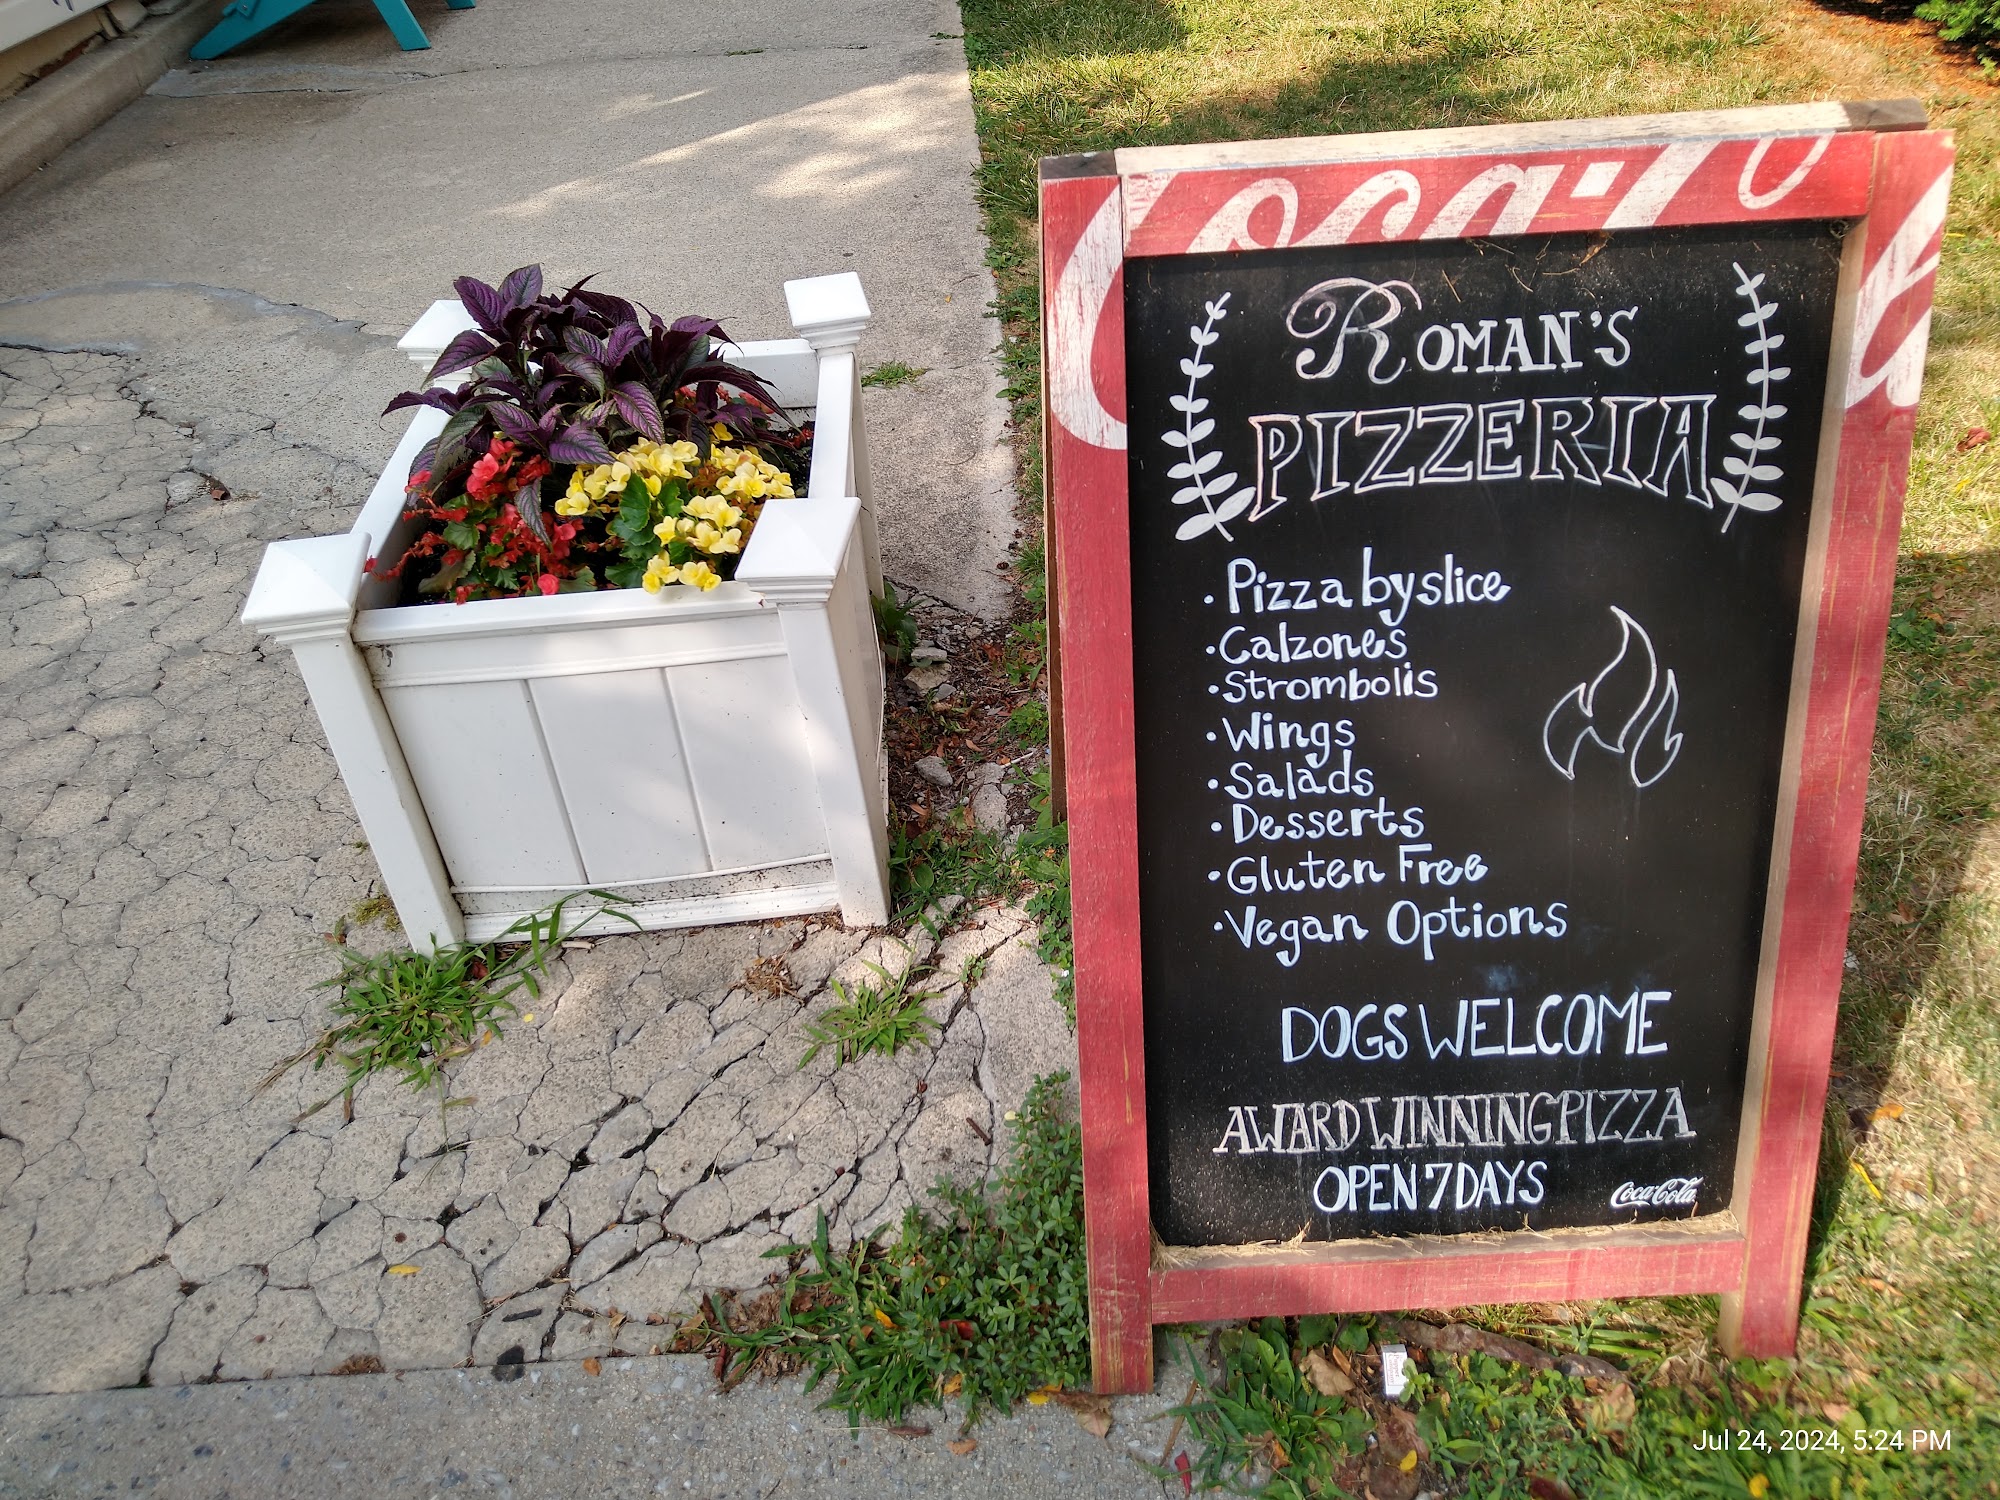 Coca-Cola
ROMAN'S
PIZZERIA
· Pizza by slice
· Calzones
· Strombolis
· Wings
· Salads
· Desserts
· Gluten Free
· Vegan Options
DOGS WELCOME
AWARD WINNING PIZZA
OPEN 7 DAYS
Coca-Cola
Jul 24, 2024, 5:24 PM